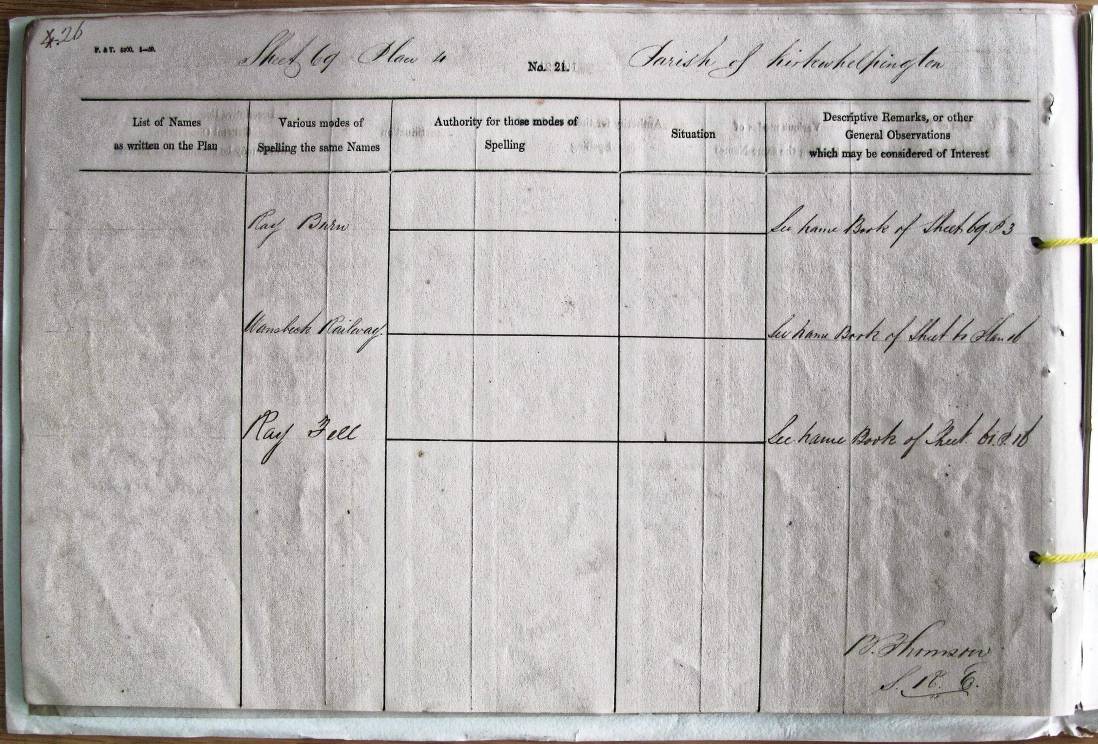 4.26
Sheet 69 Plan 4 No. 21. Parish of Kirkwhelpington
List of Names
as written on the Plan
Various modes of
Spelling the same Names
Authority for those modes of
Spelling
Situation
Descriptive Remarks, or other
General Observations
which may be considered of Interest
Ray Burn See name Book of Sheet 69.P 3
Wansbeck Railway. See name Book of Sheet 61 Plan 16
Ray Fell See name Book of Sheet 61.P.16
B. Thomson
S. R. E.